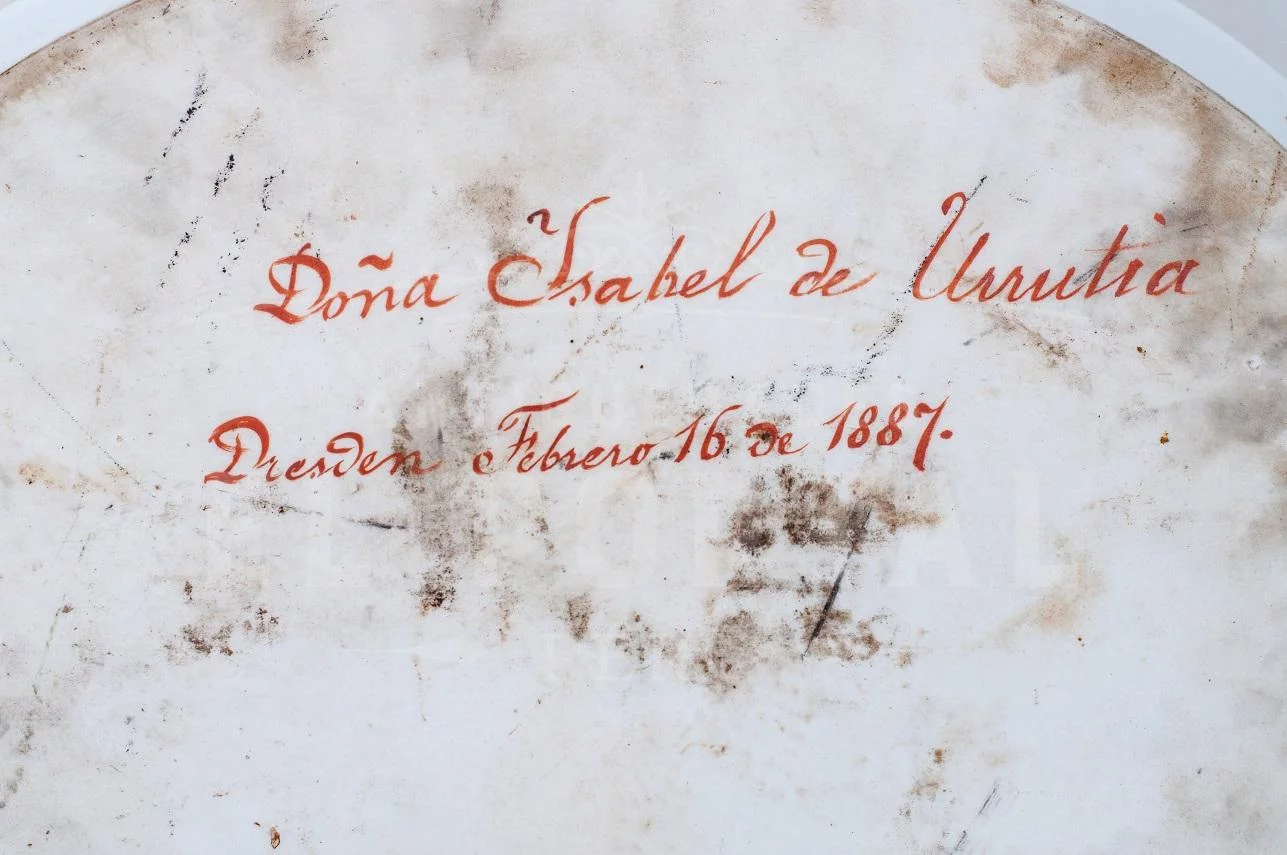 Doña Ysabel de Urrutia
Dresden Febrero 16 de 1887.